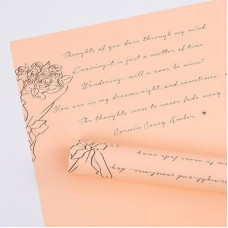 Thoughts of you dance through my mind
Knowing it is just a matter of time
Wondering will u ever be mine?
You are in my dreams, night and sometimes
The thoughts seem to never fade away
Connie Corey Amber
to never fade away
night and sometimes day